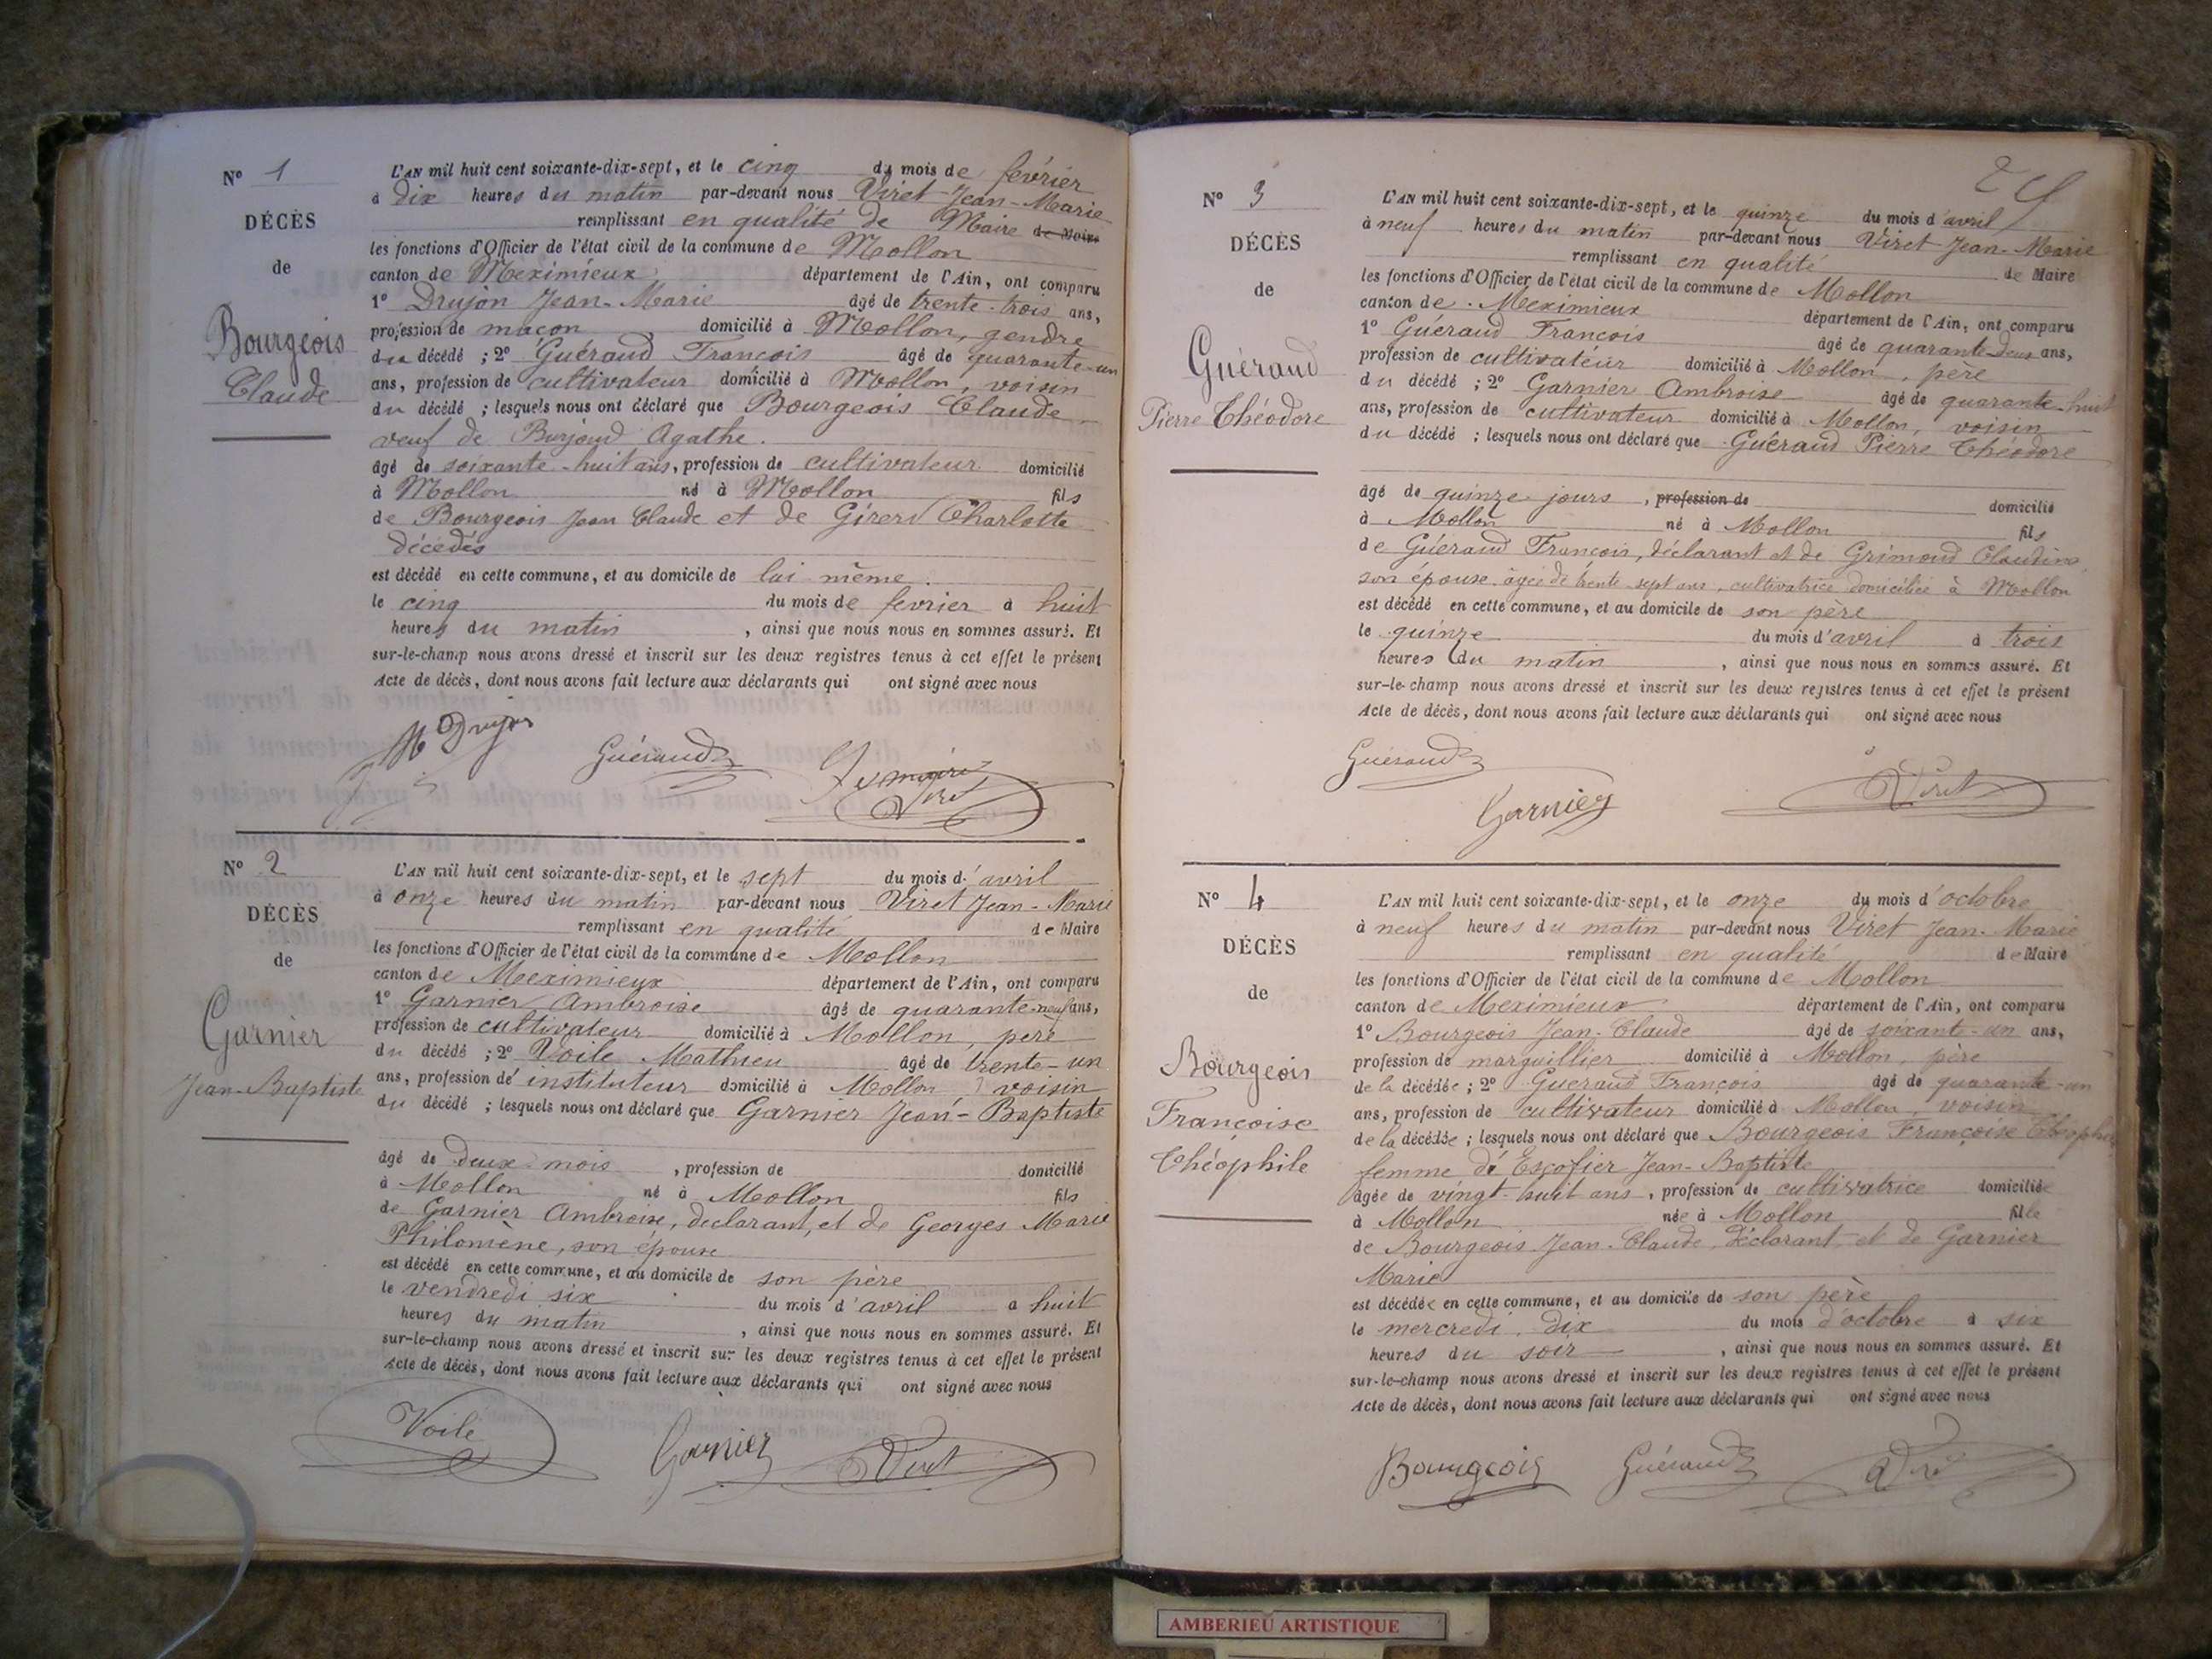 N° 1
DÉCÈS
de
Bourgeois
Claude
L'AN mil huit cent soixante-dix-sept, et le cinq du mois de février
à dix heures du matin par-devant nous Viret Jean-Marie
remplissant en qualité de Maire de Maire
les fonctions d'Officier de l'état civil de la commune de Mollon
canton de Meximieux département de l'Ain, ont comparu
1° Drujon Jean-Marie âgé de trente-trois ans,
profession de maçon domicilié à Mollon, gendre
du décédé ; 2° Guéraud François âgé de quarante-un
ans, profession de cultivateur domicilié à Mollon, voisin
du décédé ; lesquels nous ont déclaré que Bourgeois Claude
veuf de Burjoud Agathe.
âgé de soixante-huit ans, profession de cultivateur domicilié
à Mollon né à Mollon fils
de Bourgeois Jean Claude et de Girerd Charlotte
décédés
est décédé en cette commune, et au domicile de lui même.
le cinq du mois de fevrier à huit
heures du matin , ainsi que nous nous en sommes assuré. Et
sur-le-champ nous avons dressé et inscrit sur les deux registres tenus à cet effet le présent
Acte de décès, dont nous avons fait lecture aux déclarants qui ont signé avec nous
Drujon Guéraud Le maire
Viret
N° 2
DÉCÈS
de
Garnier
Jean-Baptiste
L'AN mil huit cent soixante-dix-sept, et le sept du mois d'avril
à onze heures du matin par-devant nous Viret Jean-Marie
remplissant en qualité de Maire
les fonctions d'Officier de l'état civil de la commune de Mollon
canton de Meximieux département de l'Ain, ont comparu
1° Garnier Ambroise âgé de quarante-neuf ans,
profession de cultivateur domicilié à Mollon, père
du décédé ; 2° Voile Mathieu âgé de trente-un
ans, profession de instituteur domicilié à Mollon, voisin
du décédé ; lesquels nous ont déclaré que Garnier Jean-Baptiste
âgé de deux mois , profession de domicilié
à Mollon né à Mollon fils
de Garnier Ambroise, declarant, et de Georges Marie
Philomène, son épouse
est décédé en cette commune, et au domicile de son père
le vendredi six du mois d'avril à huit
heures du matin , ainsi que nous nous en sommes assuré. Et
sur-le-champ nous avons dressé et inscrit sur les deux registres tenus à cet effet le présent
Acte de décès, dont nous avons fait lecture aux déclarants qui ont signé avec nous
Voile Garnier Viret
N° 3
DÉCÈS
de
Guéraud
Pierre Théodore
L'AN mil huit cent soixante-dix-sept, et le quinze du mois d'avril
à neuf heures du matin par-devant nous Viret Jean-Marie
remplissant en qualité de Maire
les fonctions d'Officier de l'état civil de la commune de Mollon
canton de Meximieux département de l'Ain, ont comparu
1° Guéraud François âgé de quarante-deux ans,
profession de cultivateur domicilié à Mollon, père
du décédé ; 2° Garnier Ambroise âgé de quarante-huit
ans, profession de cultivateur domicilié à Mollon, voisin
du décédé ; lesquels nous ont déclaré que Guéraud Pierre Théodore
âgé de quinze jours , profession de domicilié
à Mollon né à Mollon fils
de Guéraud François, déclarant et de Grimoud Claudine
son épouse âgée de trente sept ans, cultivatrice domiciliée à Mollon
est décédé en cette commune, et au domicile de son père
le quinze du mois d'avril à trois
heures du matin , ainsi que nous nous en sommes assuré. Et
sur-le-champ nous avons dressé et inscrit sur les deux registres tenus à cet effet le présent
Acte de décès, dont nous avons fait lecture aux déclarants qui ont signé avec nous
Guéraud Garnier Viret
N° 4
DÉCÈS
de
Bourgeois
Françoise
Théophile
L'AN mil huit cent soixante-dix-sept, et le onze du mois d'octobre
à neuf heures du matin par-devant nous Viret Jean-Marie
remplissant en qualité de Maire
les fonctions d'Officier de l'état civil de la commune de Mollon
canton de Meximieux département de l'Ain, ont comparu
1° Bourgeois Jean-Claude âgé de soixant-un ans,
profession de marguillier domicilié à Mollon, père
de la décédée ; 2° Gueraud François âgé de quarante-un
ans, profession de cultivateur domicilié à Mollon, voisin
de la décédée ; lesquels nous ont déclaré que Bourgeois Françoise Théophile
femme de Escofier Jean-Baptiste
âgée de vingt-huit ans , profession de cultivatrice domiciliée
à Mollon née à Mollon fille
de Bourgeois Jean-Claude, Déclarant, et de Garnier
Marie
est décédée en cette commune, et au domicile de son père
le mercredi, dix du mois d'octobre à six
heures du soir , ainsi que nous nous en sommes assuré. Et
sur-le-champ nous avons dressé et inscrit sur les deux registres tenus à cet effet le présent
Acte de décès, dont nous avons fait lecture aux déclarants qui ont signé avec nous
Bourgeois Guéraud Viret
AMBERIEU ARTISTIQUE